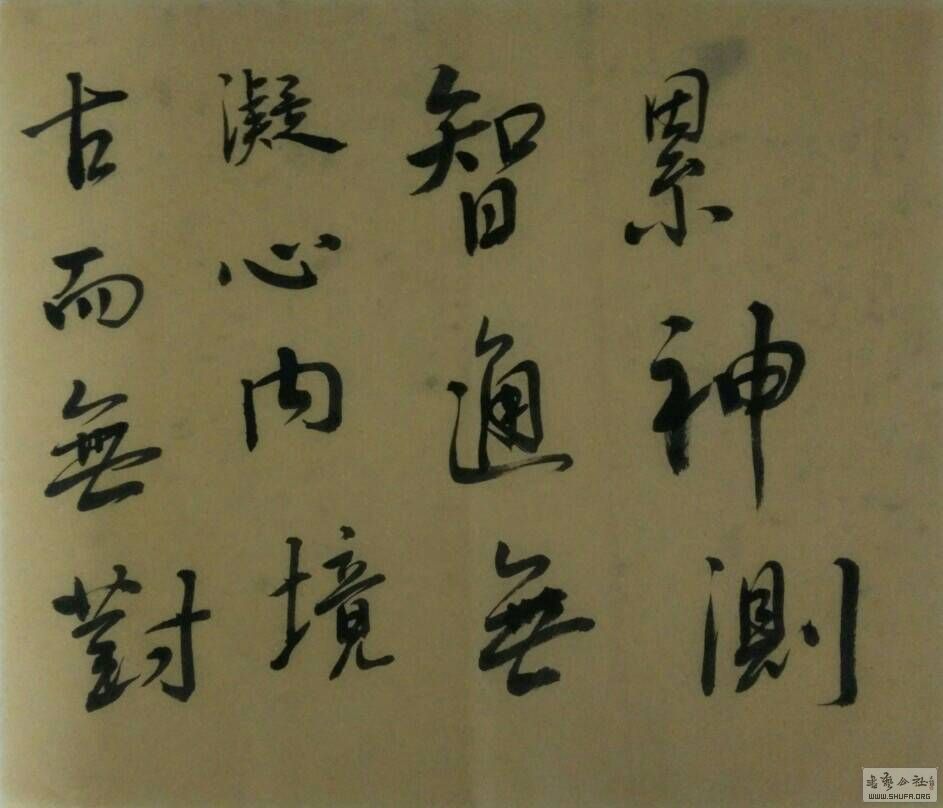 累神測
智通無
凝心内境
古而無對
書藝公社
WWW.SHUFA.ORG